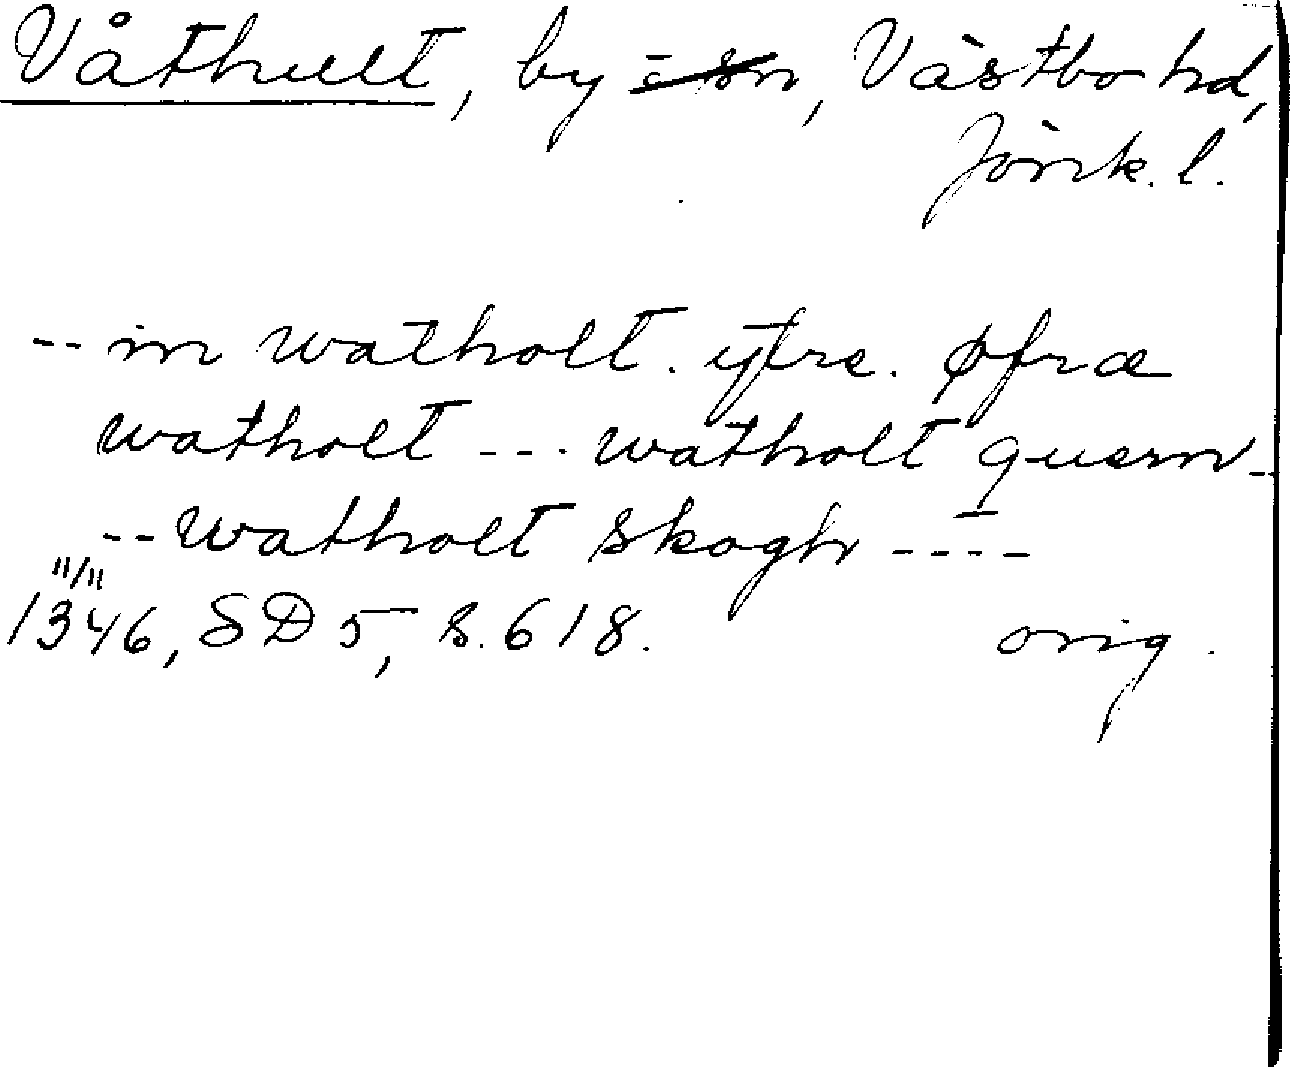 Våthult, by i sn, Västbo hd,
Jönk. l.
-- in watholt. ytre. øfræ
watholt --- watholt quern --
-- watholt skogh ----
11/11
1346, SD 5, s. 618. orig.